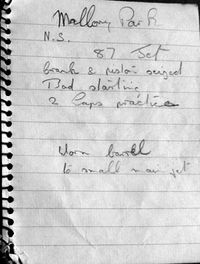 Mallory Park
N.S.
87 Jet
crank & piston seized
Bad starting
2 laps practice
Worn barrel
to small main jet